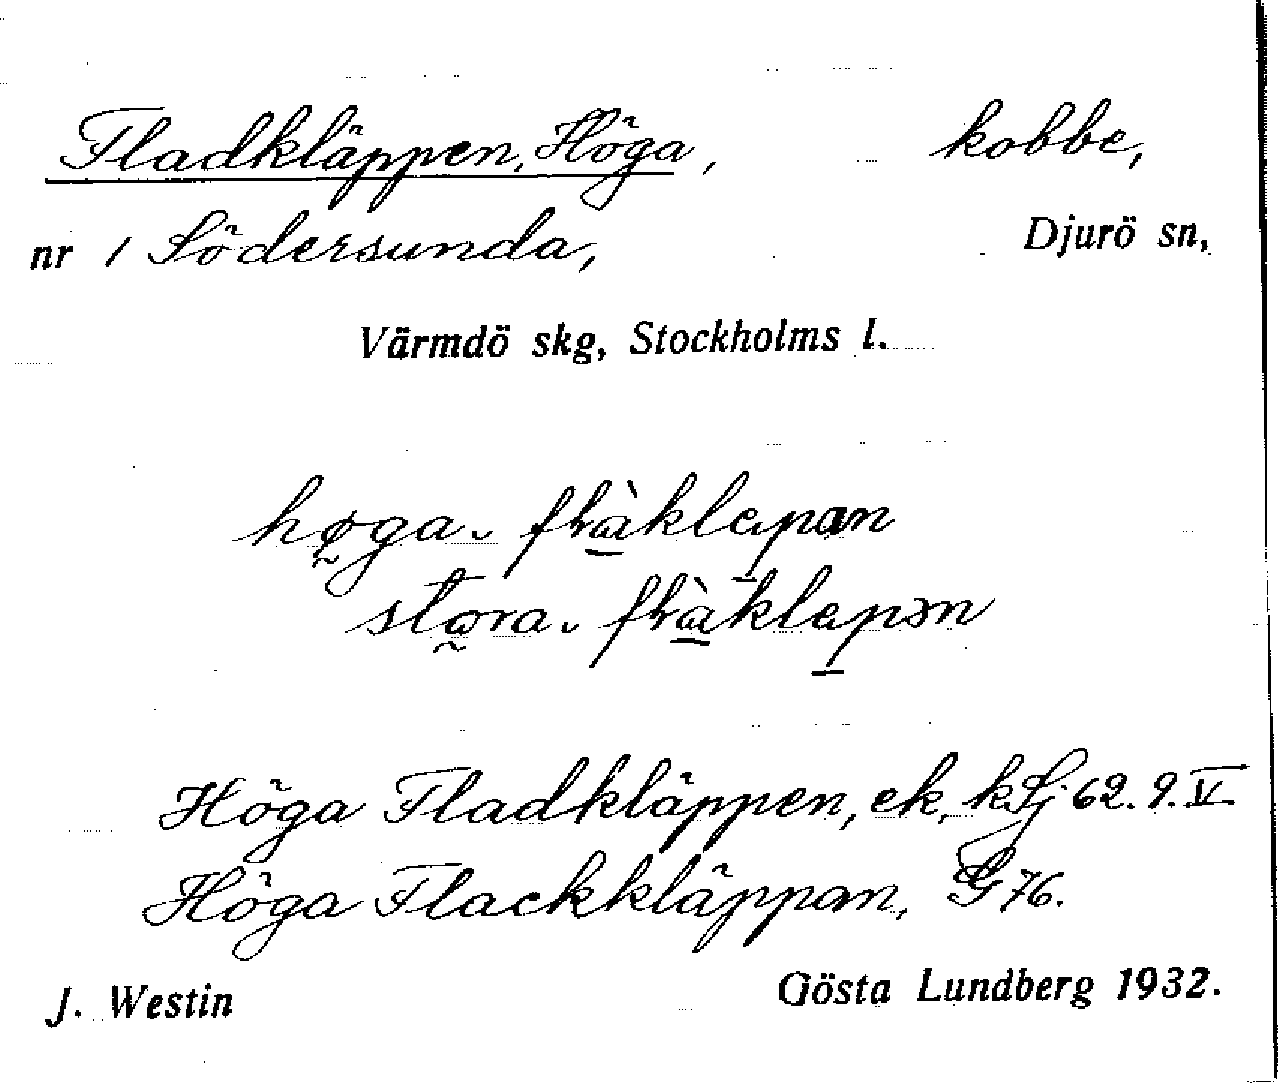 Fladkläppen, Höga, kobbe,
nr 1 Södersunda, Djurö sn,
Värmdö skg, Stockholms l.
høga flàklepan
stora flàklepən
Höga Fladkläppen, ek. k. Sj 62. 9. V
Höga Flackkläppan, G 76.
J. Westin Gösta Lundberg 1932.